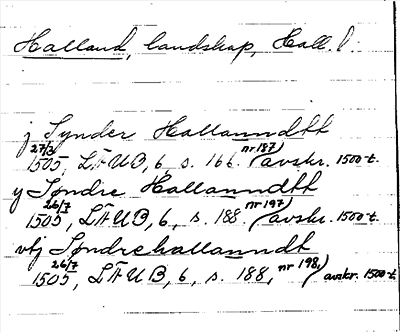 Halland, landskap, Hall. l.
j Synder Hallanndtt
27/3 1505, LÄUB, 6 s. 166. nr 187) avskr. 1500-t.
y Søndre Hallanndtt
26/7 1505, LÄUB, 6, s. 188 nr 197) avskr. 1500-t.
vtj Søndrehallanndt
26/7 1505, LÄUB, 6, s. 188, nr 198, avskr. 1500-t.